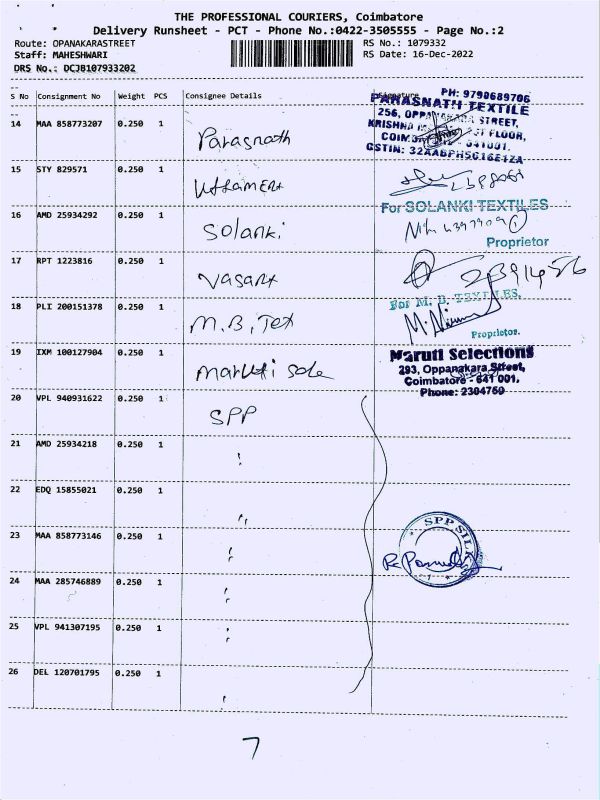 THE PROFESSIONAL COURIERS, Coimbatore
Delivery Runsheet - PCT - Phone No.:0422-3505555 - Page No.:2
Route: OPANAKARASTREET RS No.: 1079332
Staff: MAHESHWARI RS Date: 16-Dec-2022
DRS No.: DCJB107933202
S No Consignment No Weight PCS Consignee Details Signature
PH: 9790689706
PARASNATH TEXTILE
256, OPPANAKARA STREET,
KRISHNA FLOOR,
14 MAA 858773207 0.250 1 Parasnath
15 STY 829571 0.250 1
16 AMD 25934292 0.250 1 Solanki
For SOLANKI TEXTILES
Proprietor
17 RPT 1223816 0.250 1 Vasant
18 PLI 200151378 0.250 1 M.B, Tex
For M. B. TEXTILES,
Proprietor.
19 IXM 100127904 0.250 1 Maruti Sele
Maruti Selections
293, Oppanakara Street,
Coimbatore - 641 001.
Phone: 2304750
20 VPL 940931622 0.250 1 SPP
21 AMD 25934218 0.250 1
22 EDQ 15855021 0.250 1
23 MAA 858773146 0.250 1
SPP SILKS
24 MAA 285746889 0.250 1
25 VPL 941307195 0.250 1
26 DEL 120701795 0.250 1
7